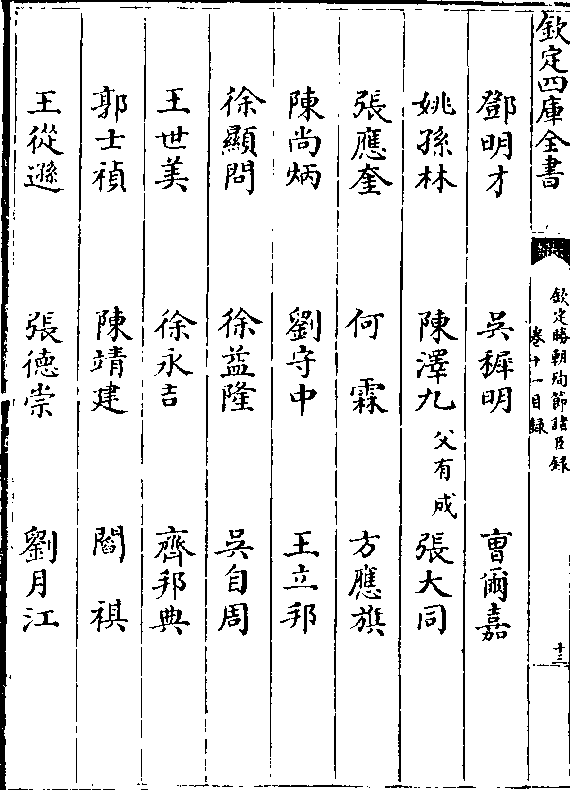 欽定四庫全書
欽定勝朝殉節諸臣録
卷十一目録
十三
鄧明才 吳穉明 曹爾嘉
姚孫林 陳澤九 父有成 張大同
張應奎 何霖 方應旗
陳尚炳 劉守中 王立邦
徐顯問 徐益隆 吳自周
王世美 徐永吉 齊邦典
郭士禎 陳靖建 閻祺
王從遜 張德崇 劉月江